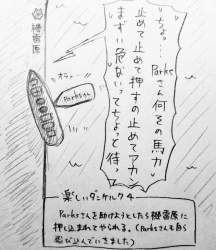 ちょっ… Parksさん何その馬力
止めて止めて押すの止めてアカン
まずい危ないってちょっと待っ
機雷原
オラァー
Parksさん
楽しいダンケルク4
Parksさんを助けようとしたら機雷原に
押し込まれてやられる。(Parksさんも自ら
飛び込んでいきました)